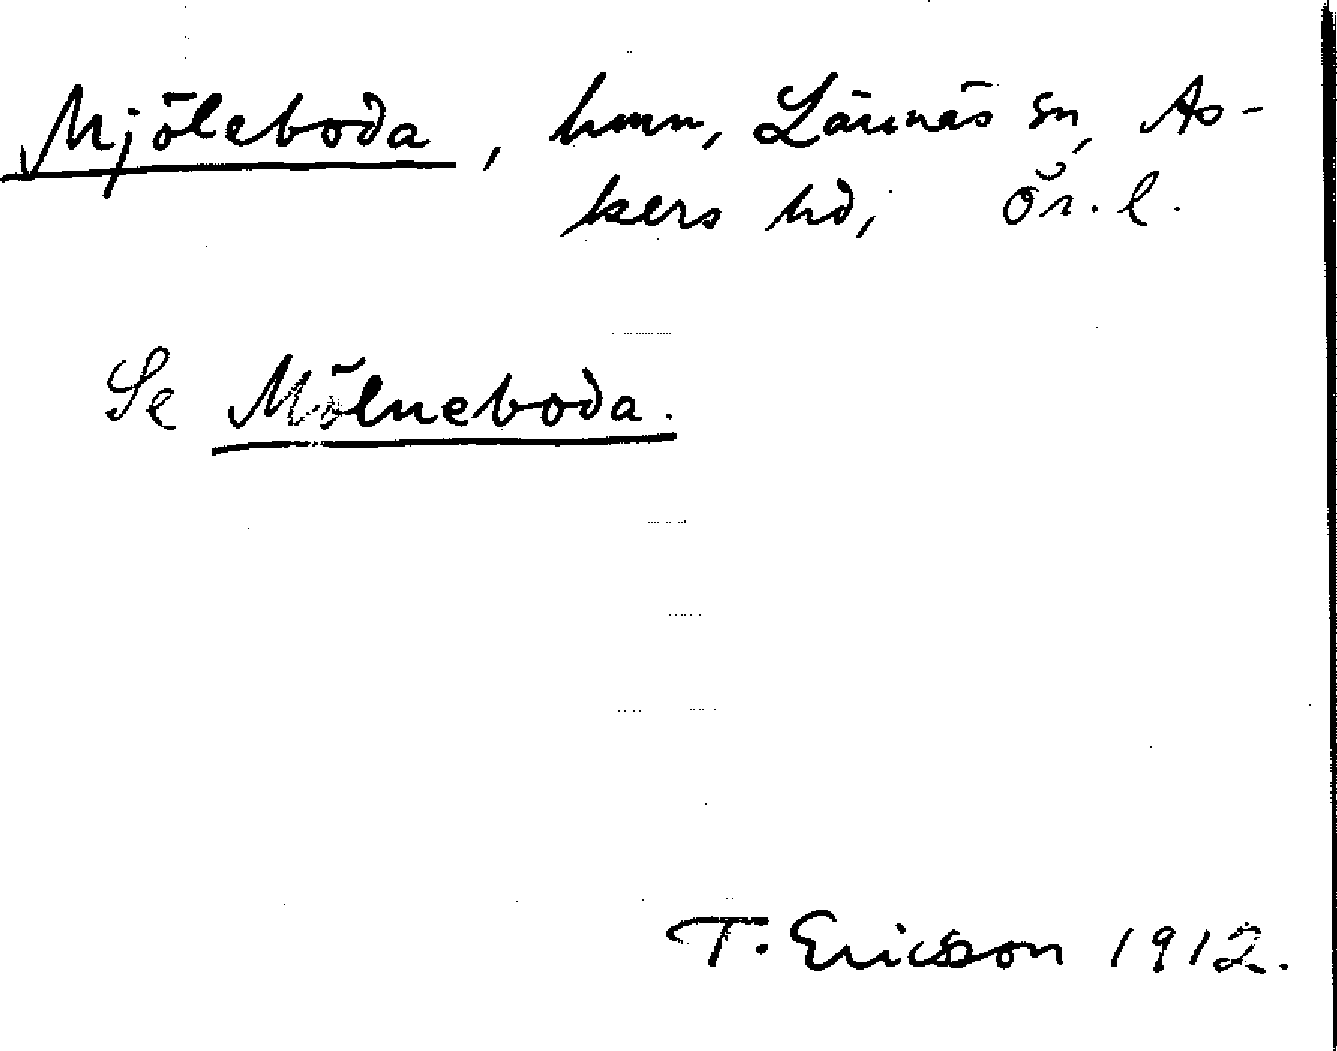 Mjöleboda, hmn, Lännäs sn, As-
kers hd, Ör. l.
Se Mölneboda.
T. Ericsson 1912.